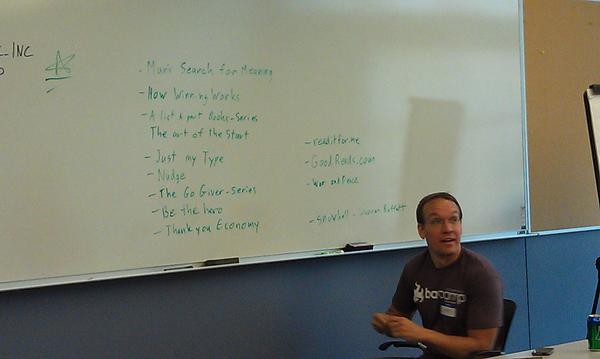 INC
- Man's Search for Meaning
- How Winning Works
- A list a part Books - Series
The art of the Start
- Just my Type
- Nudge
- The Go Giver - Series
- Be the hero
- Thank you Economy
- readitfor.me
- GoodReads.com
- War and Peace
- Snowball - Warren Buffett
barcamp